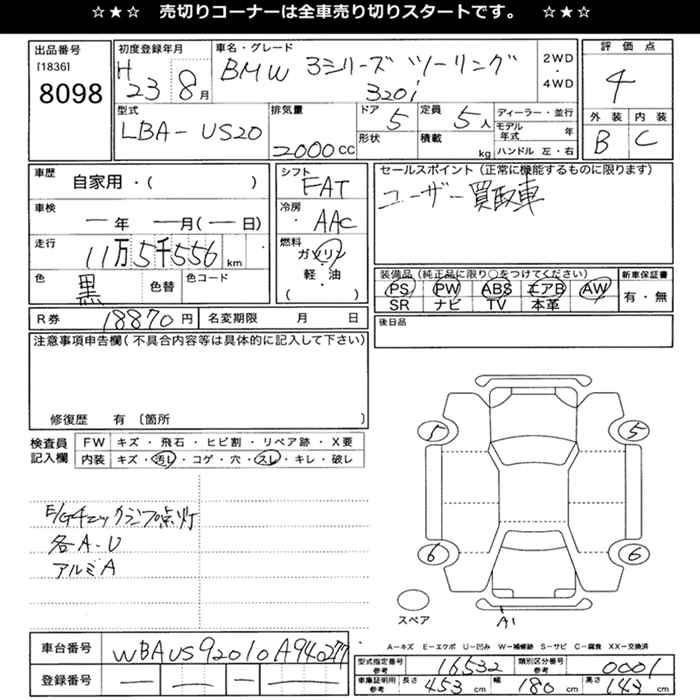 ☆★☆ 売切りコーナーは全車売り切りスタートです。 ☆★☆
出品番号
[1836]
8098
初度登録年月
H23 8月
車名・グレード
BMW 3シリーズ ツーリング
320i
2WD
・
4WD
評価点
4
外装 内装
B C
型式
LBA-US20
排気量
2000CC
ドア 5
形状
定員 5人
積載 kg
ディーラー・並行
モデル年式 年
ハンドル 左・右
車歴
自家用・( )
車検
ー年 ー月(ー日)
走行
11万5千556km
色
黒
色替
色コード
シフト
FAT
冷房
・AAC
燃料
ガソリン
軽・油
( )
セールスポイント(正常に機能するものに限ります)
ユーザー買取車
装備品(純正品に限り○をつけてください)
PS PW ABS エアB AW
SR ナビ TV 本革
新車保証書
有・無
R券 18870円
名変期限 月 日
後日品
注意事項申告欄(不具合内容等は具体的に記入して下さい)
修復歴 有〔箇所 〕
検査員
記入欄
FW キズ・飛石・ヒビ割・リペア跡・X要
内装 キズ・汚レ・コゲ・穴・スレ・キレ・破レ
E/Gチェックランプ点灯
各A-U
アルミA
5 5
6 6
スペア
A1
A－キズ E－エクボ U－凹み W－補修跡 S－サビ C－腐食 XX－交換済
車台番号
WBAUS92010A940277
登録番号
型式指定番号 参考 16532
類別区分番号 参考 0001
車庫証明用 参考 長さ 453cm 幅 180cm 高さ 143cm